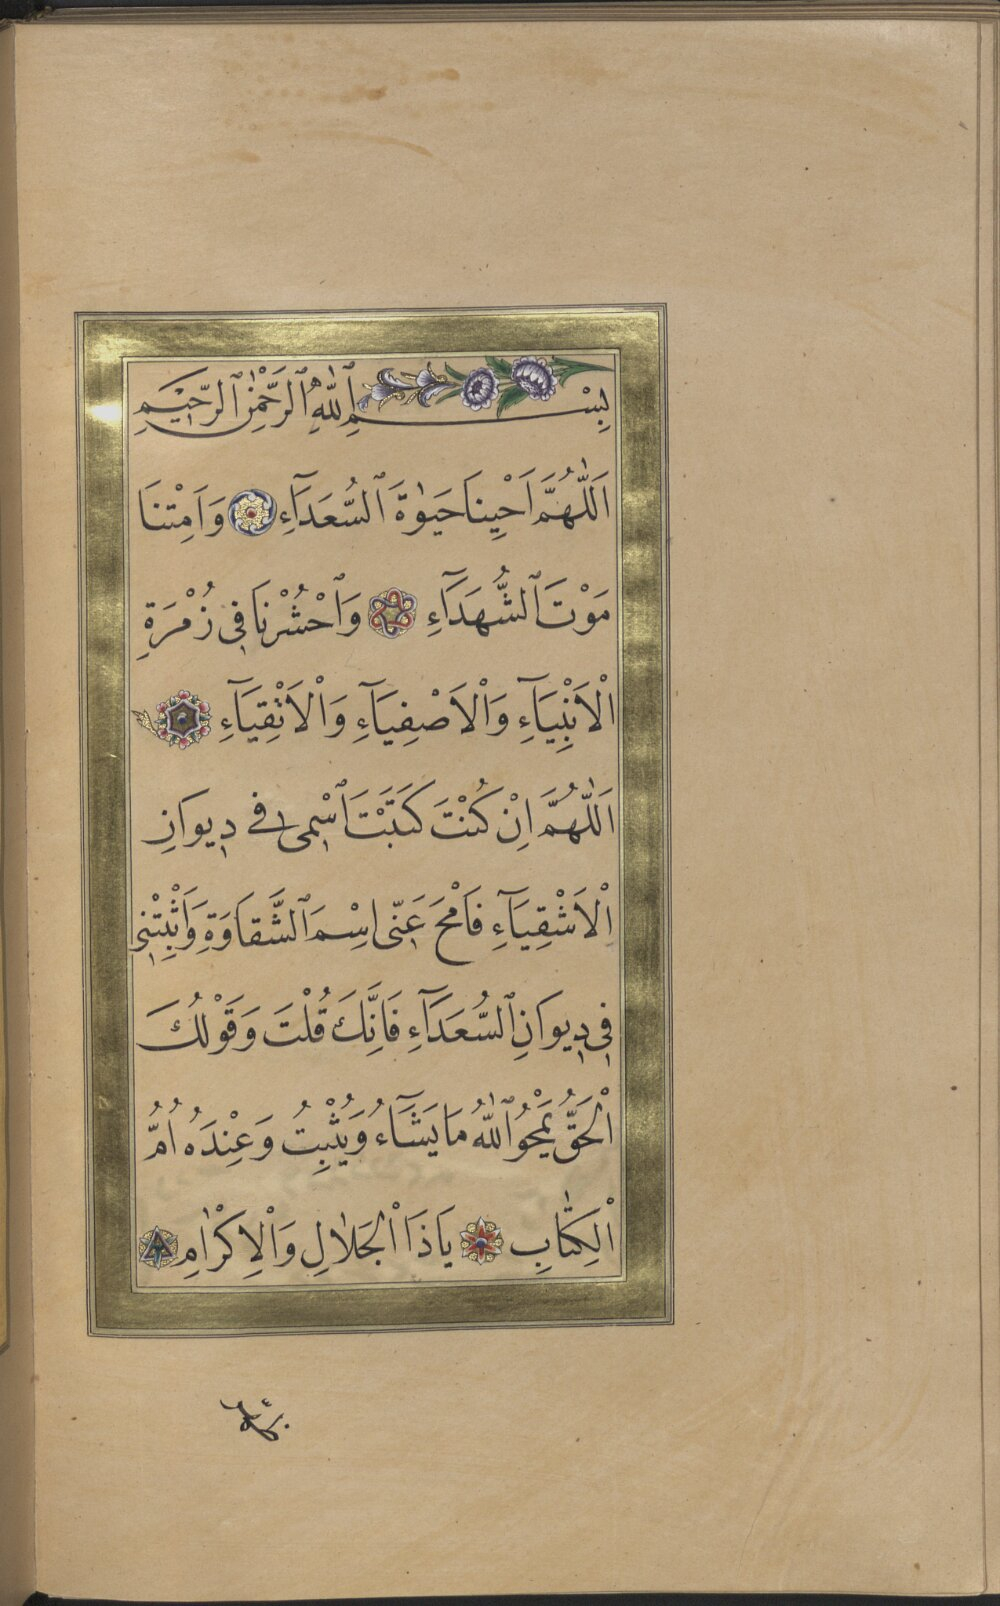 بِسْمِ ٱللّٰهِ ٱلرَّحْمٰنِ ٱلرَّحِيْمِ
اَللّٰهُمَّ اَحْيِنَا حَيٰوةَ ٱلسُّعَدَآءِ وَاَمِتْنَا
مَوْتَ ٱلشُّهَدَآءِ وَٱحْشُرْنَا فِى زُمْرَةِ
الْاَنْبِيَآءِ وَالْاَصْفِيَآءِ وَالْاَتْقِيَآءِ
اَللّٰهُمَّ اِنْ كُنْتَ كَتَبْتَ ٱسْمِى فِى دِيوَانِ
الْاَشْقِيَآءِ فَامْحَ عَنِّى اِسْمَ ٱلشَّقَاوَةِ وَاَثْبِتْنِى
فِى دِيوَانِ ٱلسُّعَدَآءِ فَاِنَّكَ قُلْتَ وَقَوْلُكَ
الْحَقُّ يَمْحُوُ ٱللّٰهُ مَا يَشَآءُ وَيُثْبِتُ وَعِنْدَهُ اُمُّ
الْكِتٰابِ يَا ذَا الْجَلٰالِ وَالْاِكْرٰامِ